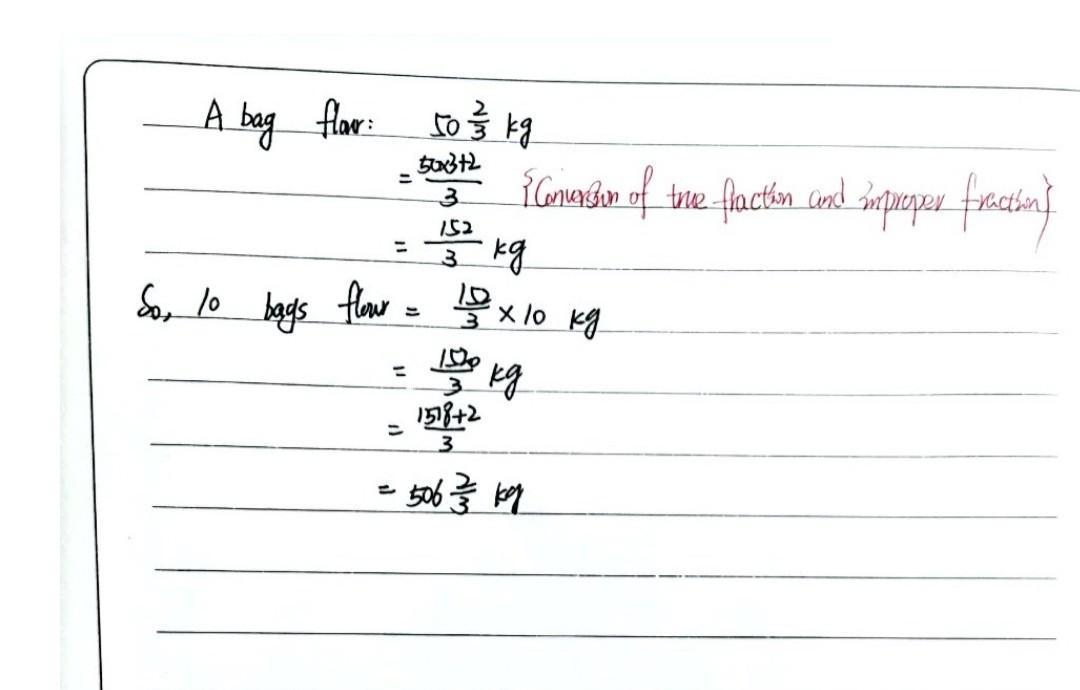 A bag flour: 50 2/3 kg
= 50×3+2/3 {Conversion of true fraction and improper fraction}
= 152/3 kg
So, 10 bags flour = 152/3 × 10 kg
= 1520/3 kg
= 1518+2/3
= 506 2/3 kg